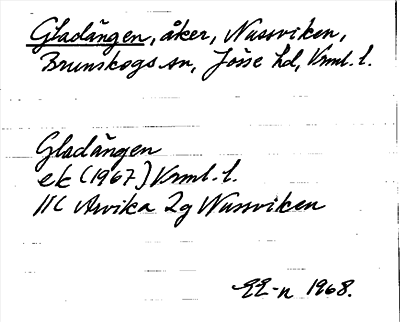 Gladängen, åker, Nussviken,
Brunskogs sn, Jösse hd, Vrml. l.
Gladängen
ek (1967) Vrml. l.
11C Arvika 2g Nussviken
1968.